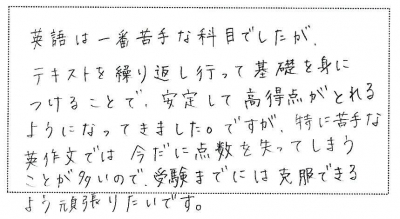 英語は一番苦手な科目でしたが、
テキストを繰り返し行って基礎を身に
つけることで、安定して高得点がとれる
ようになってきました。ですが、特に苦手な
英作文では今だに点数を失ってしまう
ことが多いので、受験までには克服できる
よう頑張りたいです。